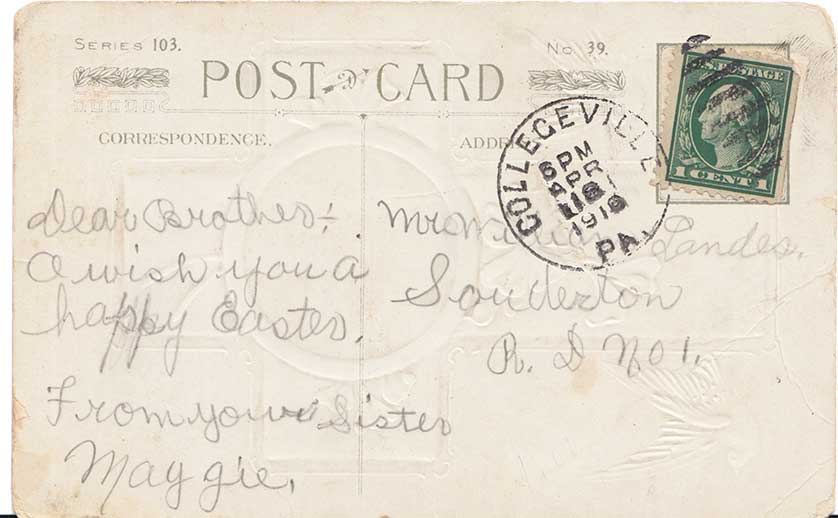 SERIES 103.
No. 39.
POST CARD
CORRESPONDENCE.
U.S. POSTAGE
1 CENT 1
COLLEGEVILLE
6 PM
APR
1916
PA.
Dear Brother:
I wish you a
happy Easter.
From your Sister
Maggie.
Mr Landes.
Souderton
R. D No 1.